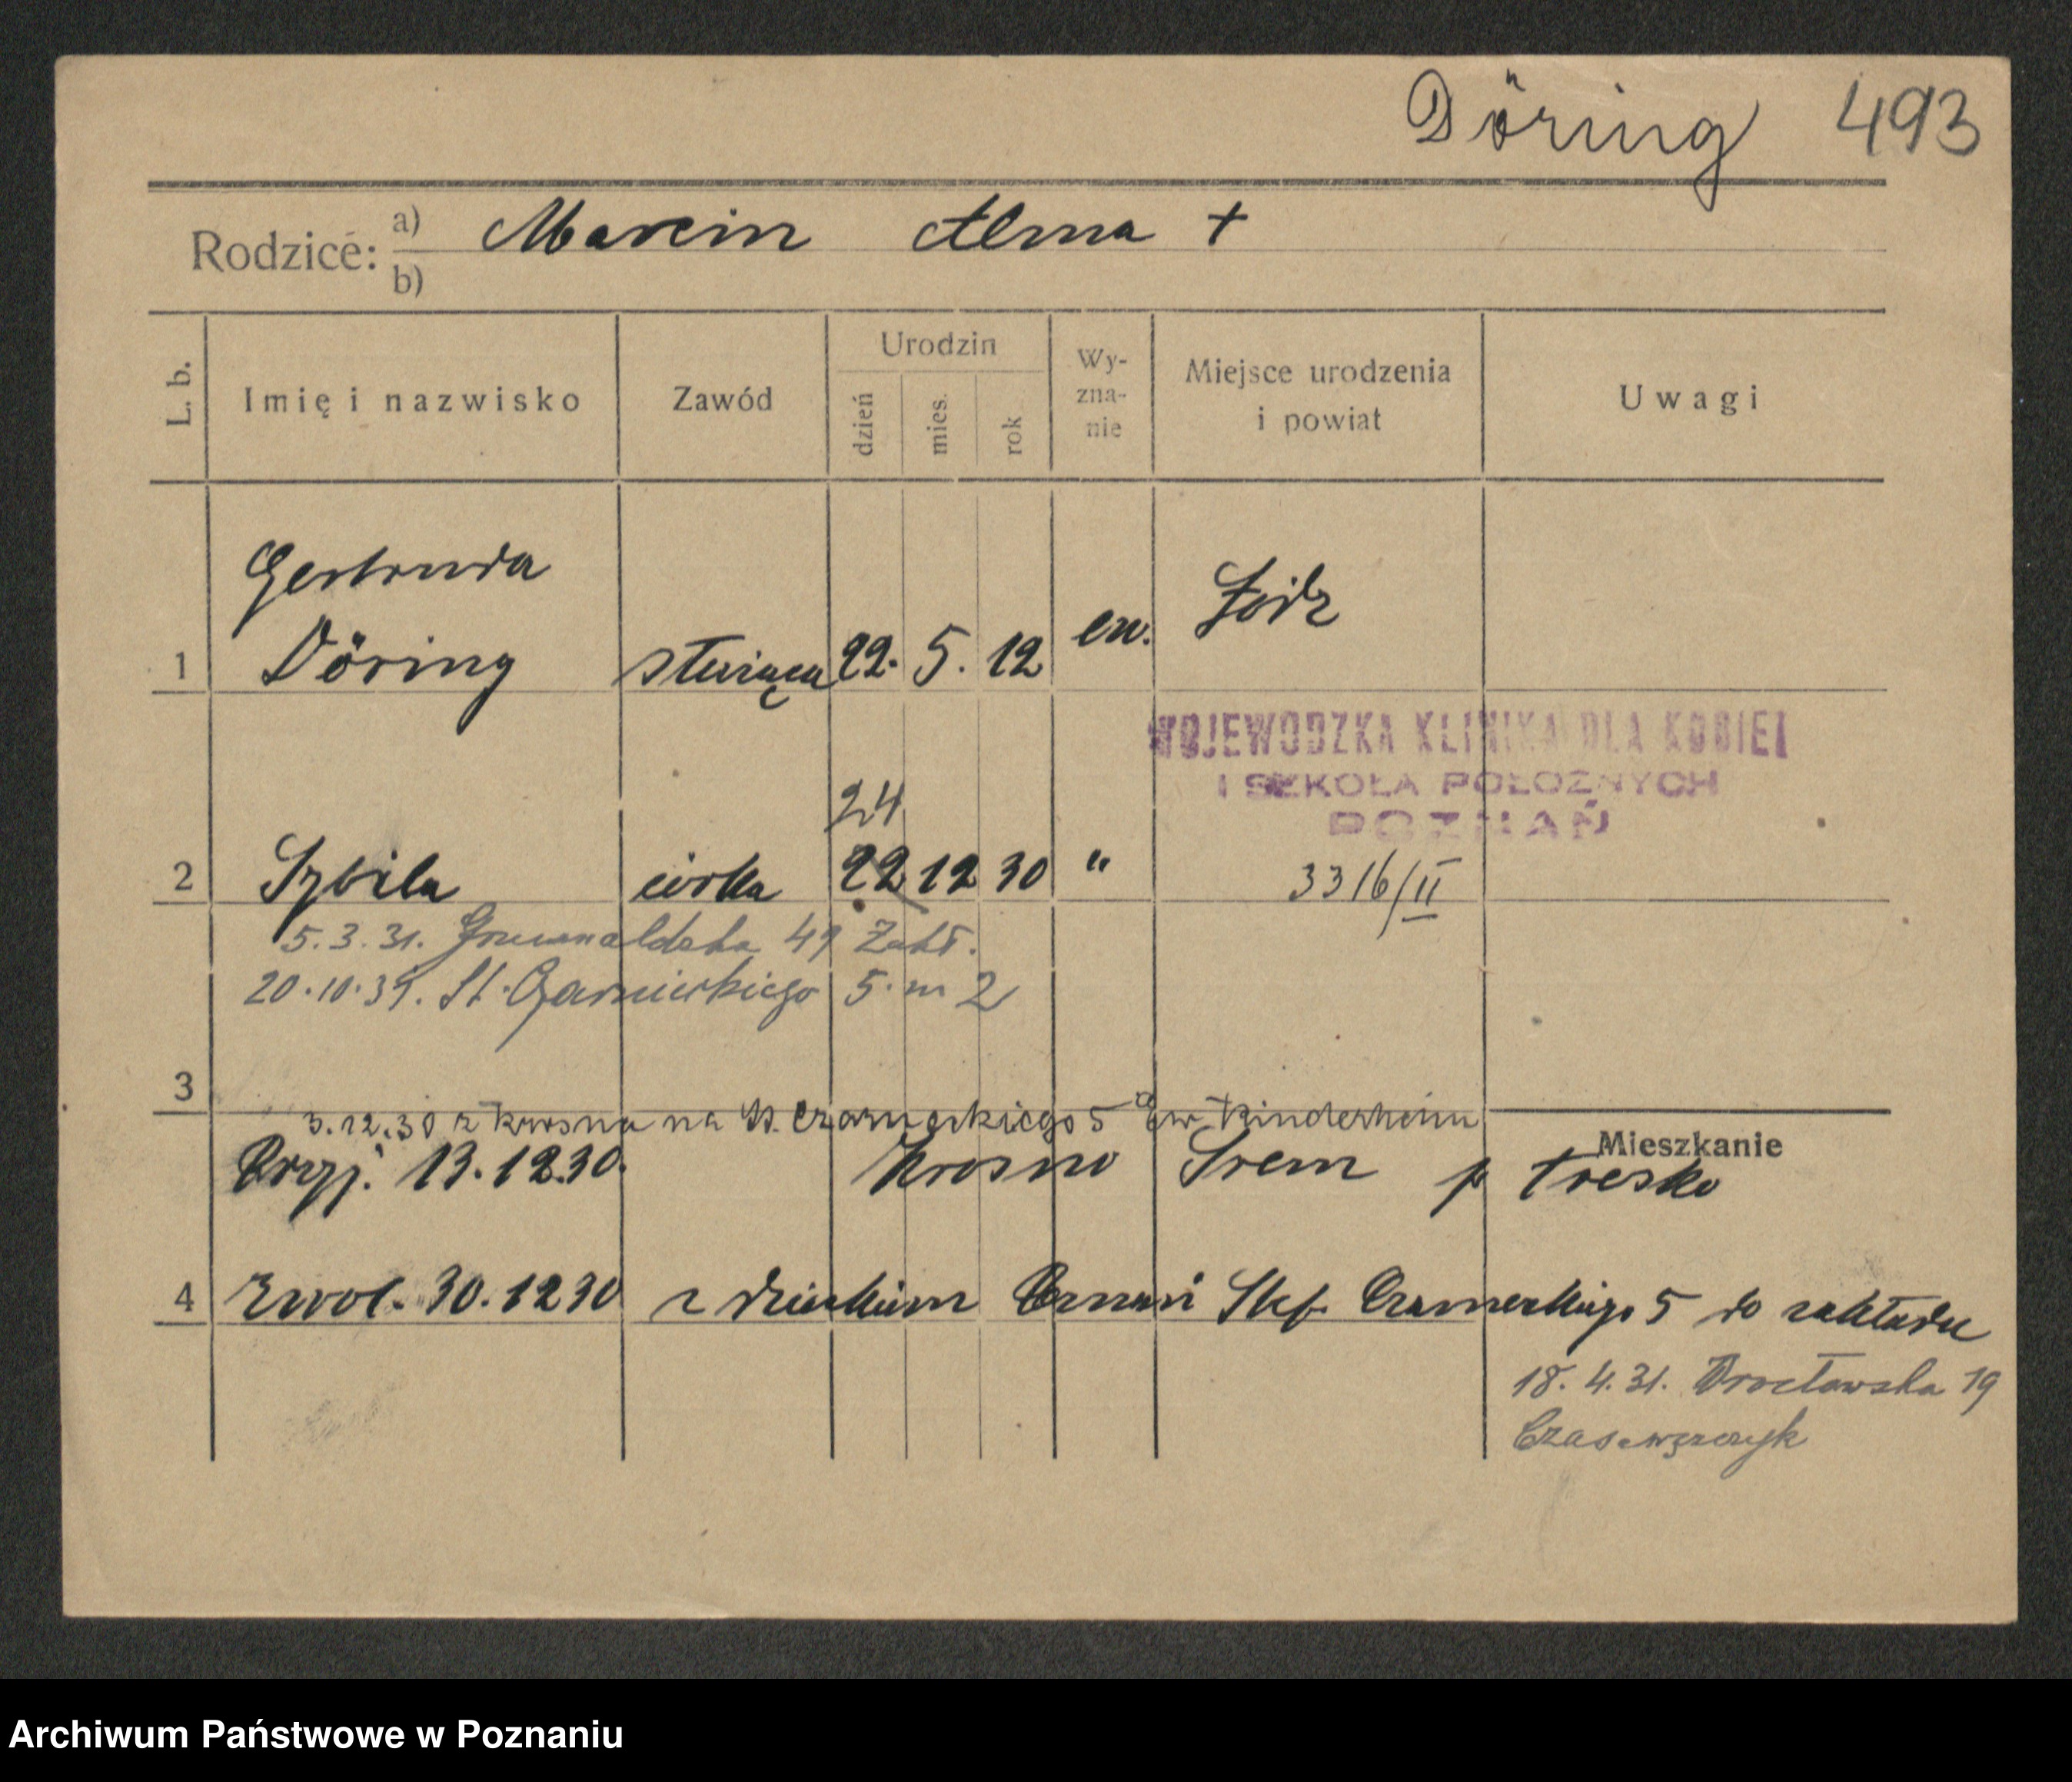 Döring 493
Rodzice: a) Marcin Alma +
b)
L. b. Imię i nazwisko Zawód Urodzin dzień mies. rok Wy-zna-nie Miejsce urodzenia i powiat Uwagi
Gertruda
1 Döring służąca 22. 5. 12 ew. Łódź
WOJEWÓDZKA KLINIKA DLA KOBIET
I SZKOŁA POŁOŻNYCH
POZNAŃ
24
2 Szbila córka 22 12 30 " 3316/II
5.3.31. Grunwaldzka 49 Zakł.
20.10.31. St. Czarnieckiego 5. m 2
3
3.12.30 z Krosna na St. Czarneckiego 5 Ew Kinderheim
Mieszkanie
Przyj. 13.12.30. Krosno Śrem p Tresko
4 Zwol. 30.12 30 z dzieckiem Poznań Stef. Czarneckiego 5 do zakładu
18. 4. 31. Wrocławska 19
Archiwum Państwowe w Poznaniu